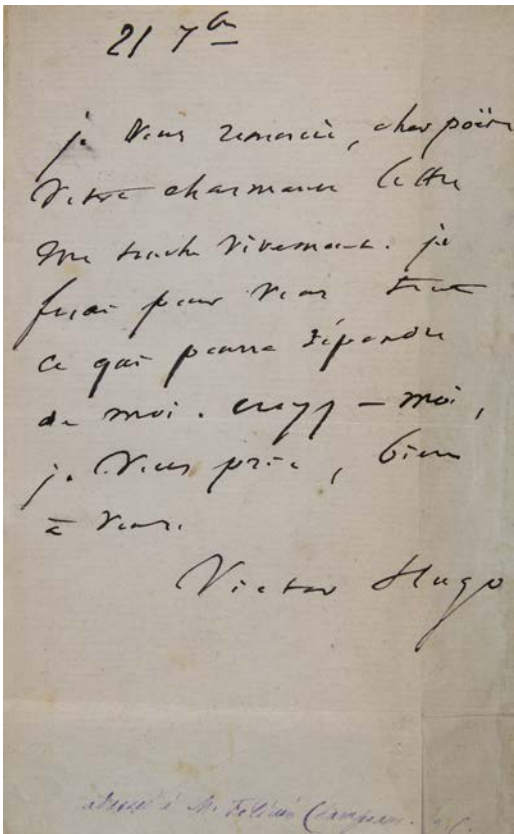 21 7bre
je vous remercie, cher poëte
votre charmante lettre
me touche vivement. je
ferai pour vous tout
ce qui pourra dépendre
de moi. croyez-moi,
je vous prie, bien
à vous.
Victor Hugo
adressé à M. Félicien Champsaur.